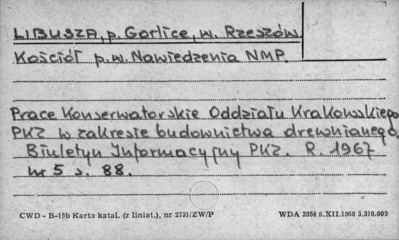 LIBUSZA, p. Gorlice, w. Rzeszów.
Kościół p.w. Nawiedzenia NMP.
Prace Konserwatorskie Oddziału Krakowskiego
PKZ w zakresie budownictwa drewnianego.
Biuletyn Informacyjny PKZ. R. 1967
nr 5 s. 88.
CWD - B-15b Karta katal. (z liniat.), nr 2731/ZW/P
WDA 3354 6.XII.1960 3.310.000